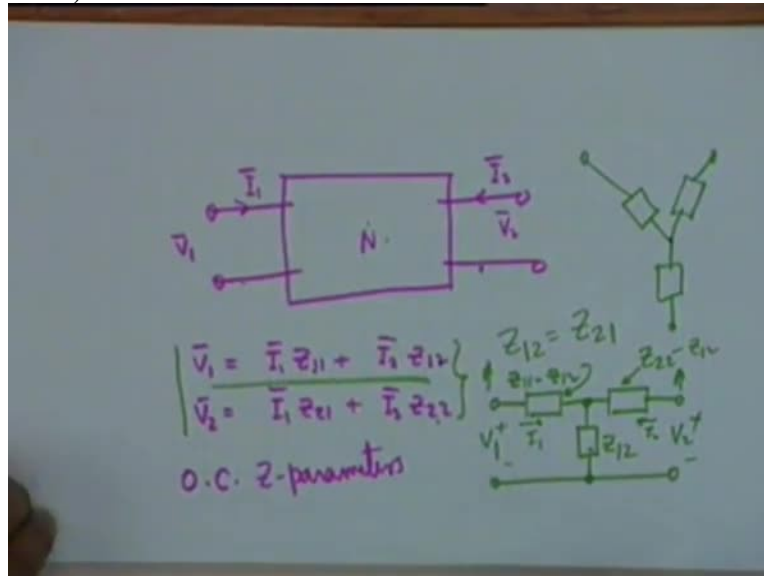 I̅₁
I̅₂
V̅₁
N.
V̅₂
V̅₁ = I̅₁ Z₁₁ + I̅₂ Z₁₂
V̅₂ = I̅₁ Z₂₁ + I̅₂ Z₂₂
O.C. Z-parameters
Z₁₂ = Z₂₁
Z₁₁ - Z₁₂
Z₂₂ - Z₁₂
V₁ + -
I₁
Z₁₂
I₂
V₂ + -